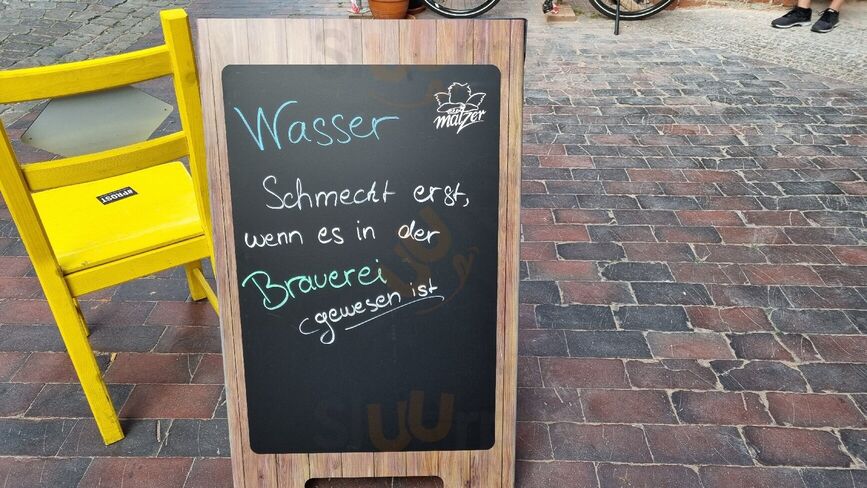 Wasser
Schmeckt erst,
wenn es in der
Brauerei
gewesen ist
mälzer
#PROST
sluurpy